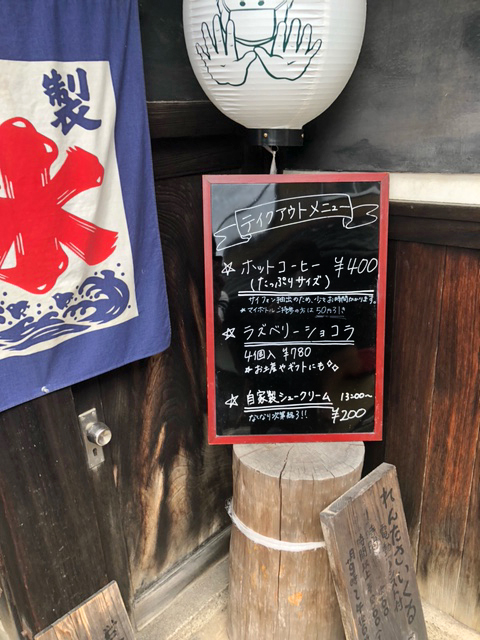 製
氷
テイクアウトメニュー
☆ホットコーヒー ¥400
(たっぷりサイズ)
サイフォン抽出のため、少々お時間かかります。
*マイボトルご持参の方は50円引き
☆ラズベリーショコラ
4個入 ¥780
*お土産やギフトにも
☆自家製シュークリーム 13:00〜
なくなり次第終了!! ¥200
れんたさいくる
営